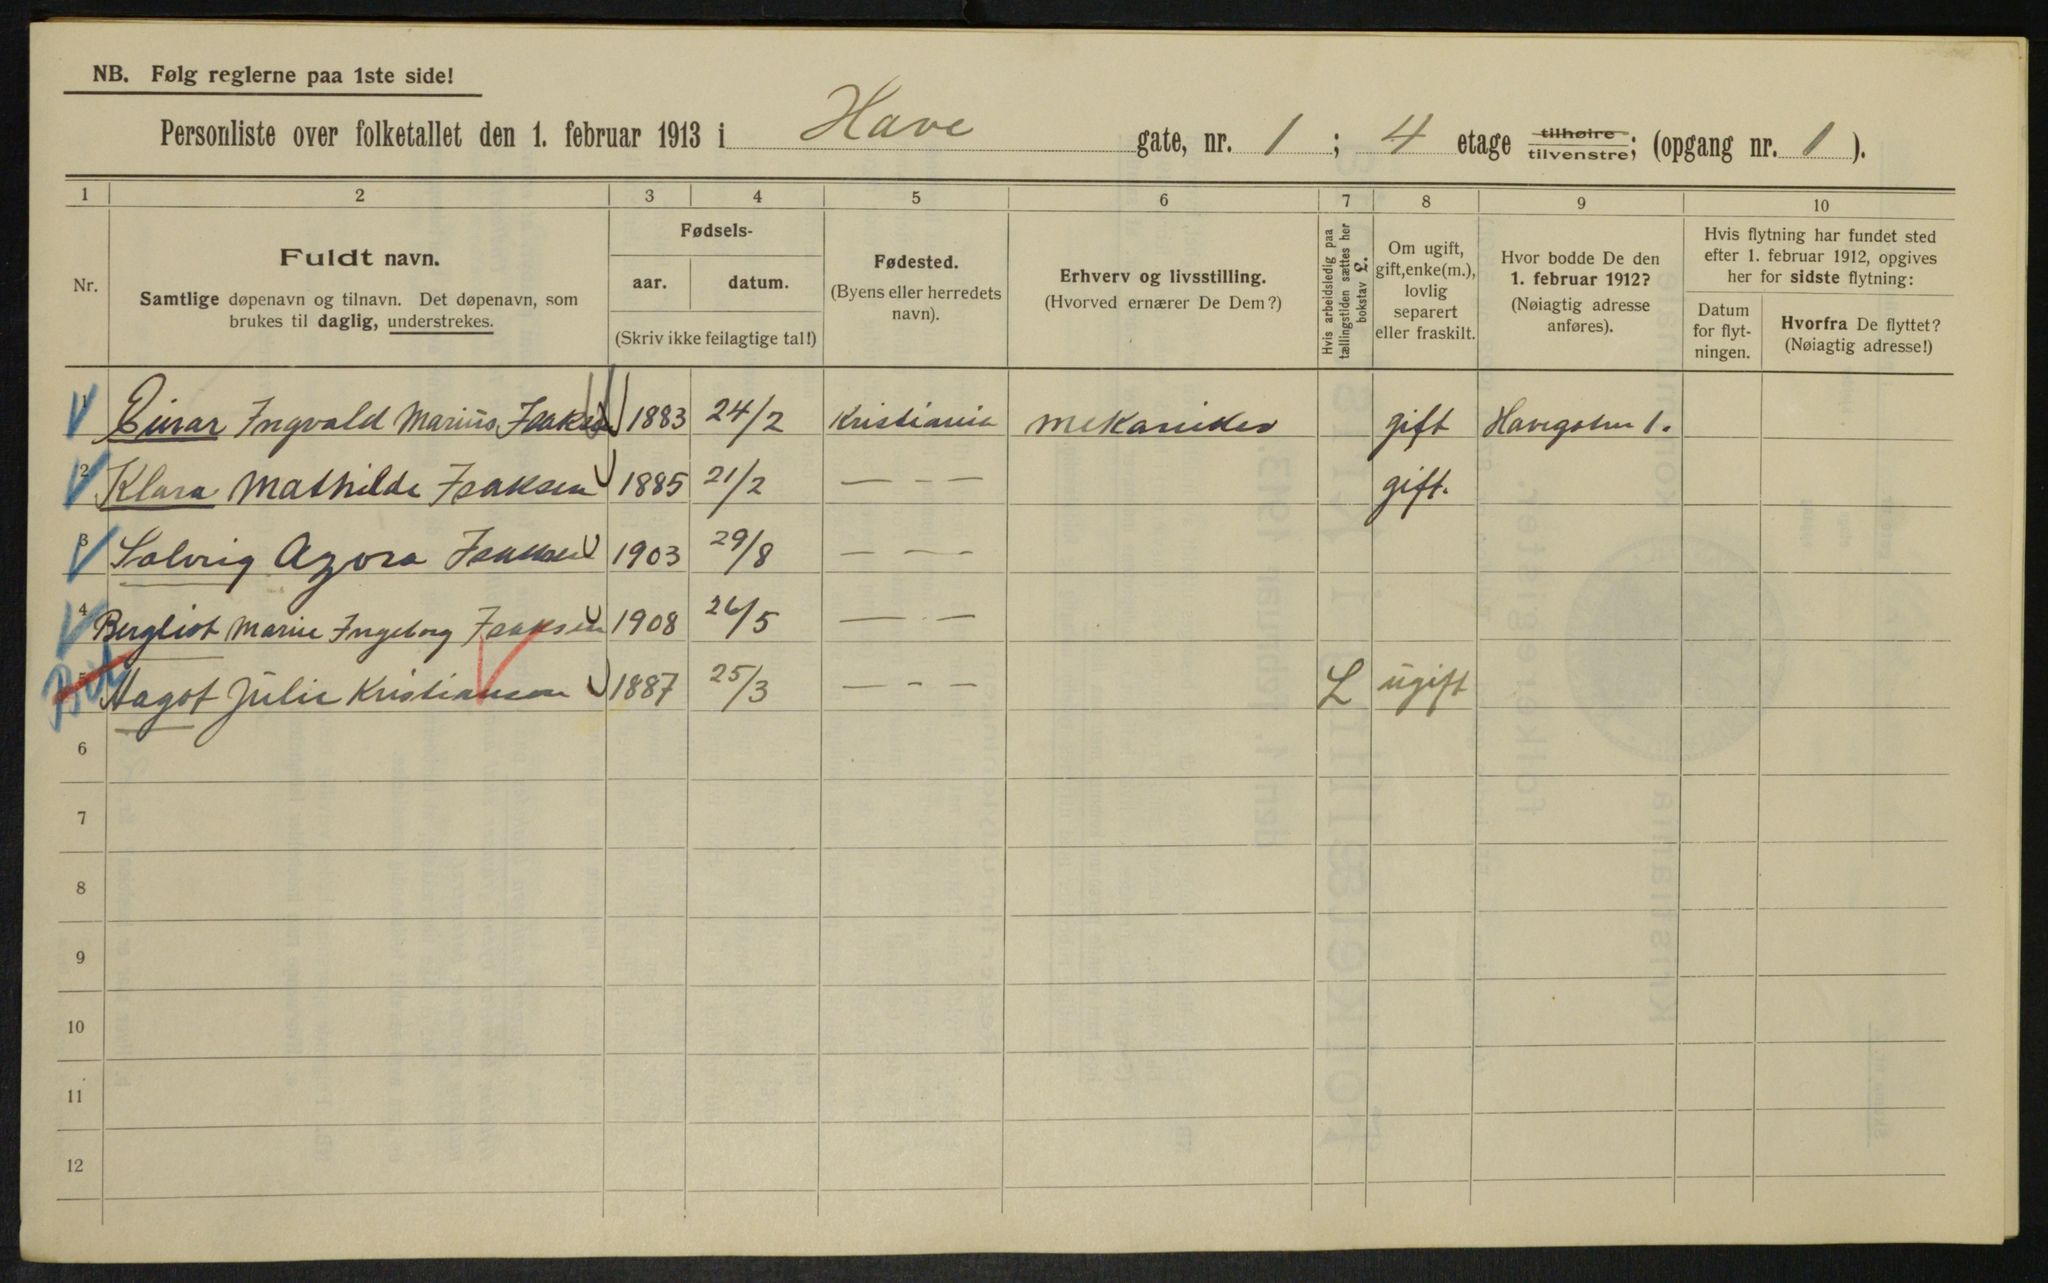 NB. Følg reglerne paa 1ste side!
Personliste over folketallet den 1. februar 1913 i Have gate, nr. 1 ; 4 etage tilhøire tilvenstre; (opgang nr. 1 ).
1 2 3 4 5 6 7 8 9 10
Nr.
Fuldt navn.
Samtlige døpenavn og tilnavn. Det døpenavn, som
brukes til daglig, understrekes.
Fødsels-
aar. datum.
(Skriv ikke feilagtige tal!)
Fødested.
(Byens eller herredets
navn).
Erhverv og livsstilling.
(Hvorved ernærer De Dem?)
Hvis arbeidsledig paa
tællingstiden sættes her
bokstav L.
Om ugift,
gift, enke(m.),
lovlig
separert
eller fraskilt.
Hvor bodde De den
1. februar 1912?
(Nøiagtig adresse
anføres).
Hvis flytning har fundet sted
efter 1. februar 1912, opgives
her for sidste flytning:
Datum
for flyt-
ningen.
Hvorfra De flyttet?
(Nøiagtig adresse!)
1 Einar Ingvald Marius Isaksen 1883 24/2 Kristiania mekaniker gift Havegaten 1.
2 Klara Mathilde Isaksen 1885 21/2 — - — gift.
3 Solvig Agora Isaksen 1903 29/8 — — —
4 Bergliot Marie Ingeborg Isaksen 1908 26/5 — - —
5 Hagot Julie Kristiansen 1887 25/3 — - — L ugift
6
7
8
9
10
11
12